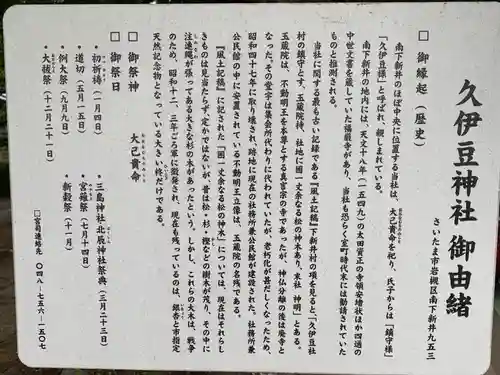 久伊豆神社 御由緒
さいたま市岩槻区南下新井九五三
□ 御縁起(歴史)
南下新井のほぼ中央に位置する当社は、大己貴命を祀り、氏子からは『鎮守様』
『久伊豆様』と呼ばれ、親しまれている。
南下新井の地内には、天文十八年(一五四九)の太田資正の寺領安堵状ほか四通の
中世文書を蔵していた福巌寺があり、当社も恐らく室町時代末には勧請されていた
ものと推測される。
当社に関する最も古い記録である『風土記稿』下新井村の項を見ると、「久伊豆社
村の鎮守とす、玉蔵院持、社地に囲一丈余なる松の神木あり、末社 神明」とある。
玉蔵院は、不動明王を本尊とする真言宗の寺であったが、神仏分離の後は廃寺と
なった。その堂宇は集会所代わりに使われていたが、老朽化が甚だしくなったため、
昭和四十七年に取り壊され、跡地に現在の社務所兼公民館が建設された。社務所兼
公民館の中に安置されている不動明王立像は、玉蔵院の名残である。
『風土記稿』に記された「囲一丈余なる松の神木」については、現在はそれらし
きものは見当たらず定かではないが、昔は松・杉・樫などの樹木が茂り、その中に
注連縄が張ってある大きな杉の木があったという。しかし、これらの大木は、戦争
のため、昭和十二、三年ごろ軍に徴発され、現在も残っているのは、銀杏と市指定
天然記念物となっている大きい柊だけである。
□ 御祭神 大己貴命
□ 御祭日
・初祈祷(一月四日) ・三島神社・北辰神社祭典(三月二十三日)
・道切(五月十五日) ・宮薙祭(七月十四日)
・例大祭(九月九日) ・新穀祭(十一月)
・大祓祭(十二月二十一日)
□宮司連絡先 〇四八-七五六-一五〇七